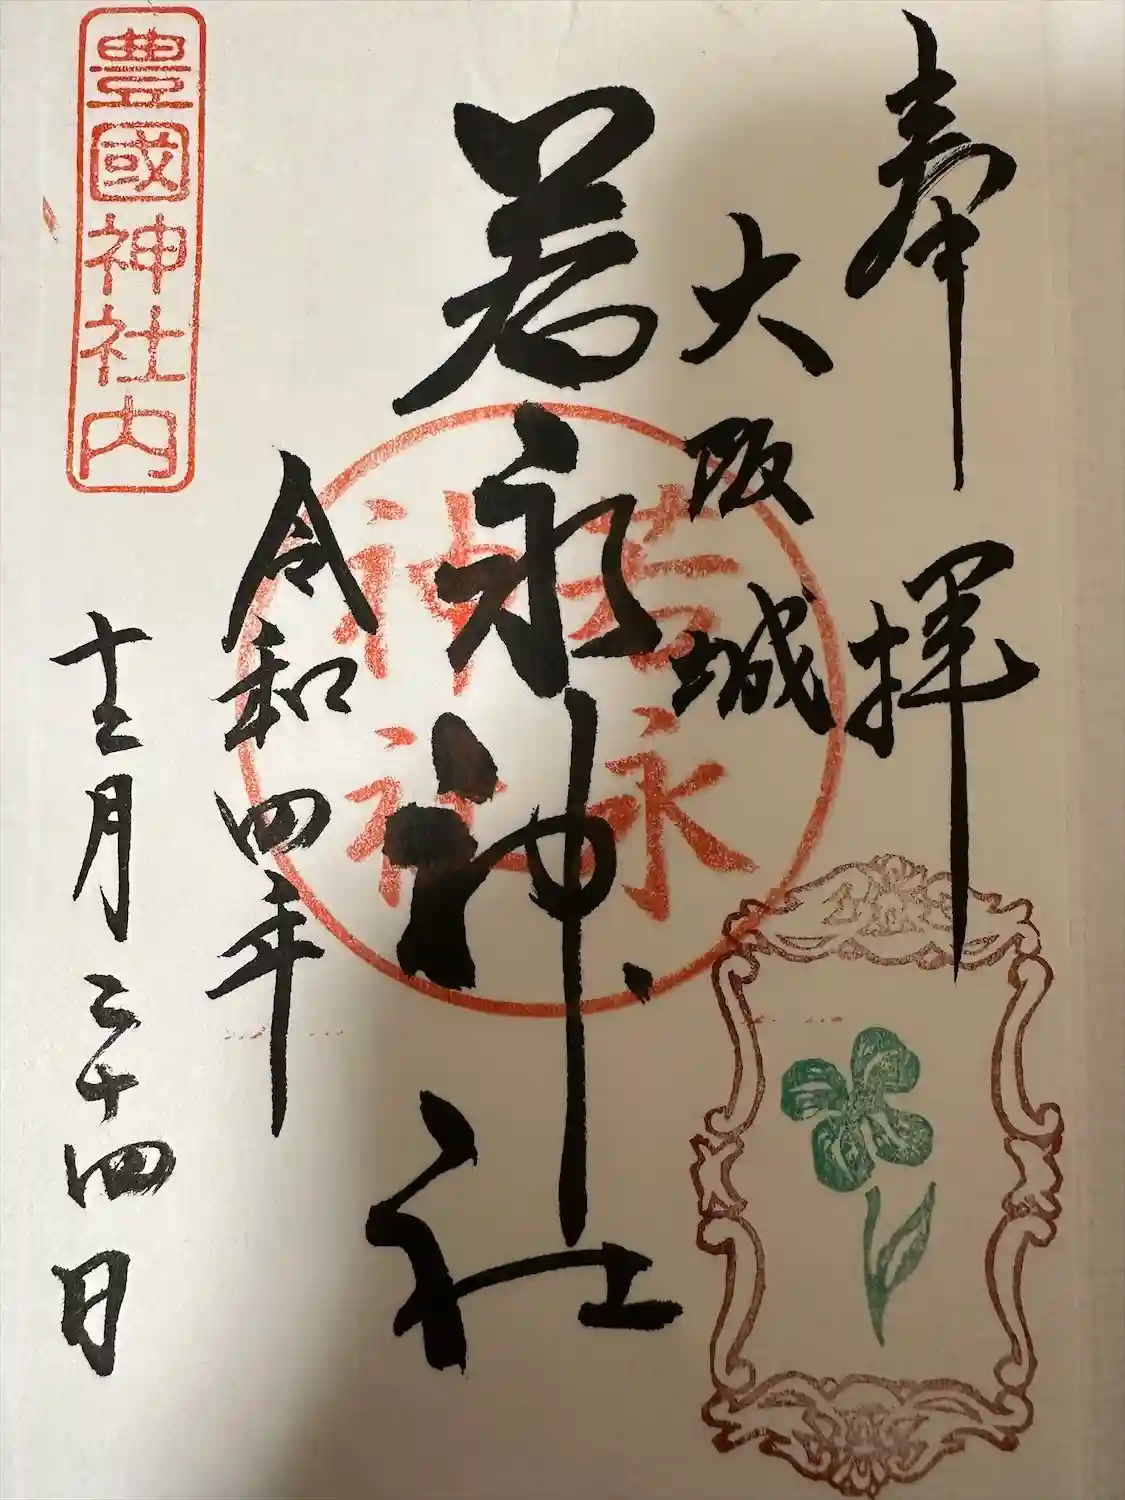 奉拝
大阪城
若永神社
若永
神社
令和四年
十二月二十四日
豊國神社内